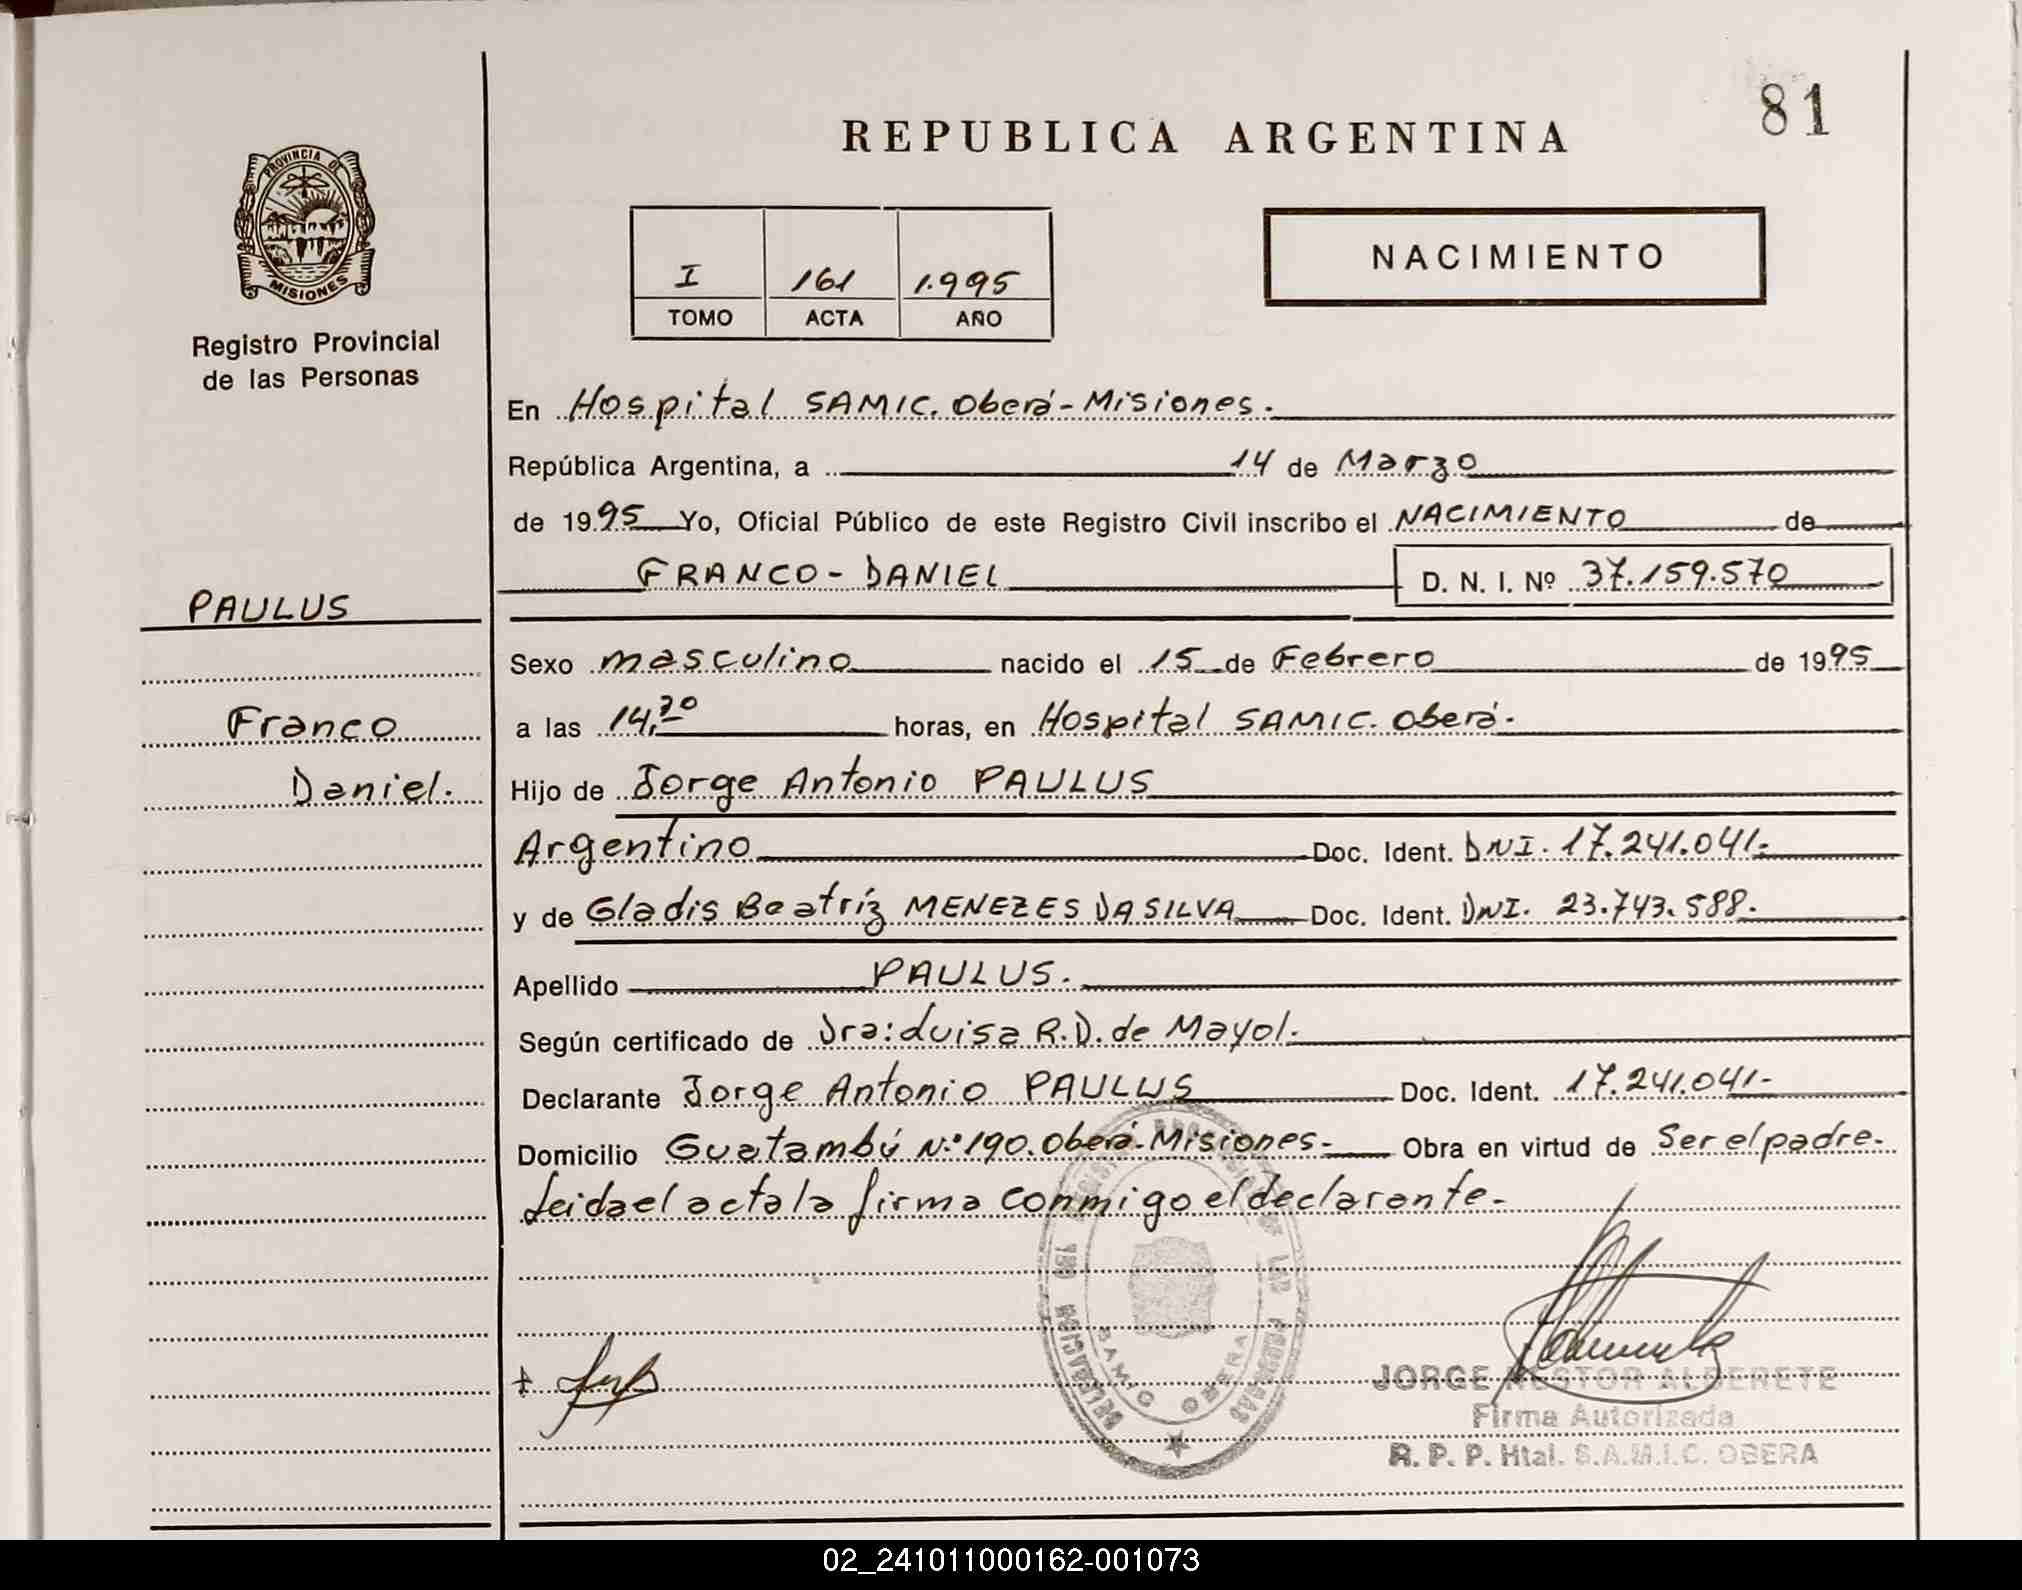 81
REPUBLICA ARGENTINA
PROVINCIA DE
MISIONES
Registro Provincial
de las Personas
NACIMIENTO
I 161 1.995
TOMO ACTA AÑO
En Hospital SAMIC. Oberá-Misiones.
República Argentina, a 14 de Marzo
de 1995 Yo, Oficial Público de este Registro Civil inscribo el NACIMIENTO de
FRANCO-DANIEL D. N. I. Nº 37.159.570
PAULUS
Franco
Daniel.
Sexo masculino nacido el 15 de Febrero de 1995
a las 14,20 horas, en Hospital SAMIC. Oberá.
Hijo de Jorge Antonio PAULUS
Argentino Doc. Ident. DNI. 17.241.041.-
y de Gladis Beatríz MENEZES DASILVA Doc. Ident. DNI. 23.743.588.
Apellido PAULUS.
Según certificado de Dra: Luisa R.D. de Mayol.
Declarante Jorge Antonio PAULUS Doc. Ident. 17.241.041-
Domicilio Guatambú N:º190. Oberá-Misiones- Obra en virtud de Ser el padre.
Leida el acta la firma conmigo el declarante-
DELEGACION
SAMIC OBERA
JORGE NESTOR ALDERETE
Firma Autorizada
R. P. P. Htal. S.A.M.I.C. OBERA
02_241011000162-001073